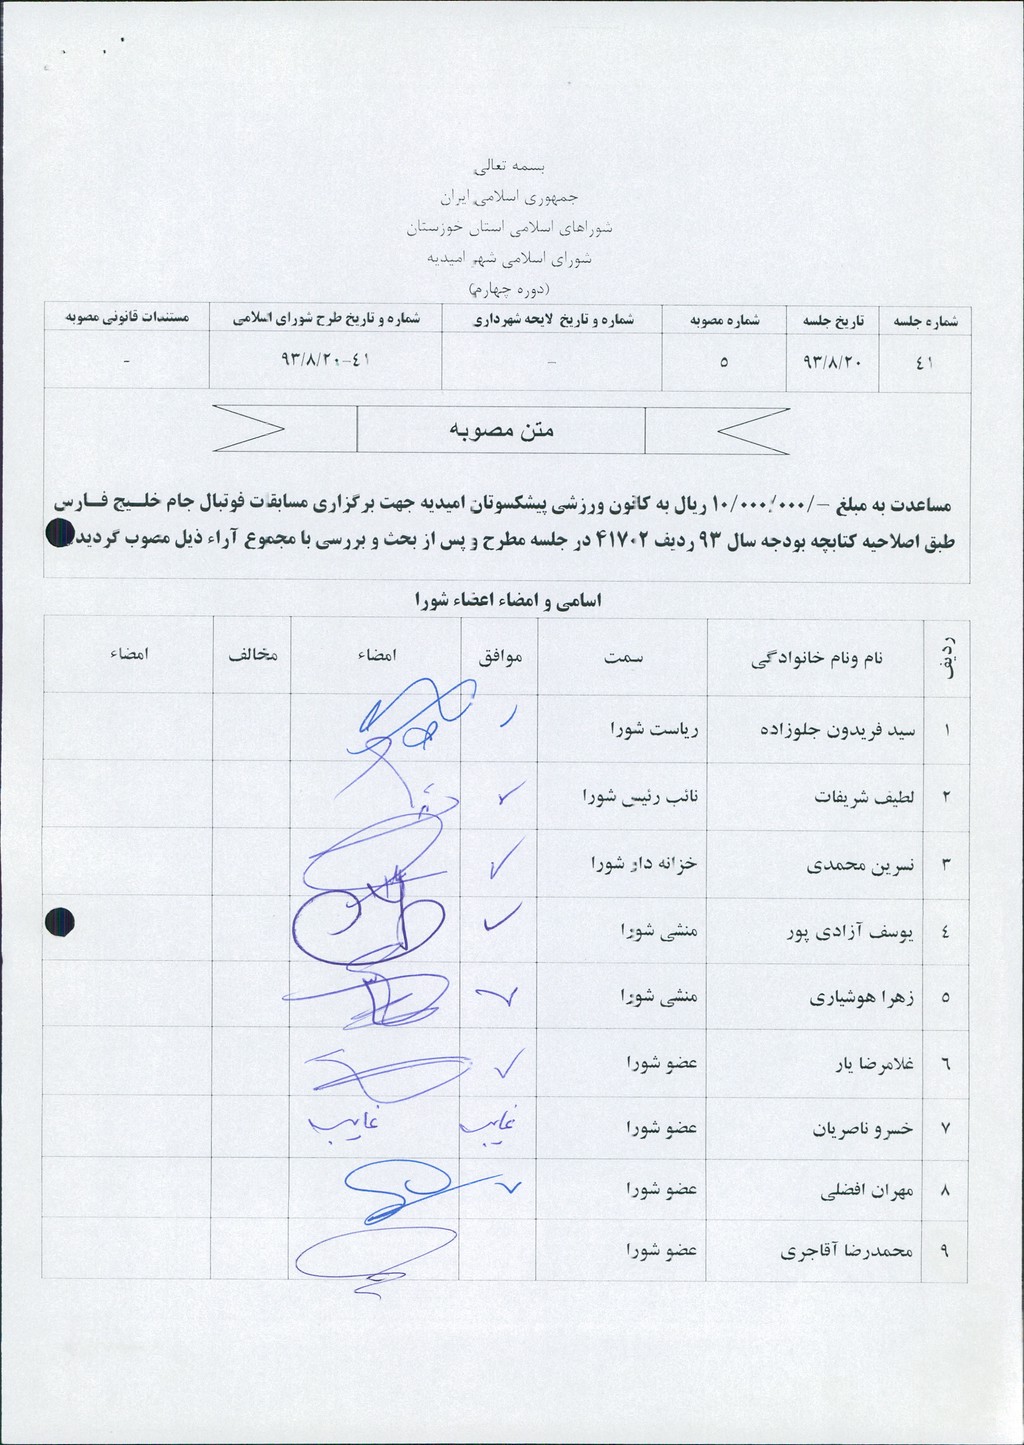 بسمه تعالی
جمهوری اسلامی ایران
شوراهای اسلامی استان خوزستان
شورای اسلامی شهر امیدیه
(دوره چهارم)
شماره جلسه تاریخ جلسه شماره مصوبه شماره و تاریخ لایحه شهرداری شماره و تاریخ طرح شورای اسلامی مستندات قانونی مصوبه
۴۱ ۹۳/۸/۲۰ ۵ – ۴۱-۹۳/۸/۲۰ -
متن مصوبه
مساعدت به مبلغ –/۱۰/۰۰۰/۰۰۰ ریال به کانون ورزشی پیشکسوتان امیدیه جهت برگزاری مسابقات فوتبال جام خلیج فارس
طبق اصلاحیه کتابچه بودجه سال ۹۳ ردیف ۴۱۷۰۲ در جلسه مطرح و پس از بحث و بررسی با مجموع آراء ذیل مصوب گردید
اسامی و امضاء اعضاء شورا
ردیف نام ونام خانوادگی سمت موافق امضاء مخالف امضاء
۱ سید فریدون جلوزاده ریاست شورا
۲ لطیف شریفات نائب رئیس شورا ✓
۳ نسرین محمدی خزانه دار شورا ✓
۴ یوسف آزادی پور منشی شورا ✓
۵ زهرا هوشیاری منشی شورا ✓
۶ غلامرضا یار عضو شورا ✓
۷ خسرو ناصریان عضو شورا غایب غایب
۸ مهران افضلی عضو شورا ✓
۹ محمدرضا آقاجری عضو شورا